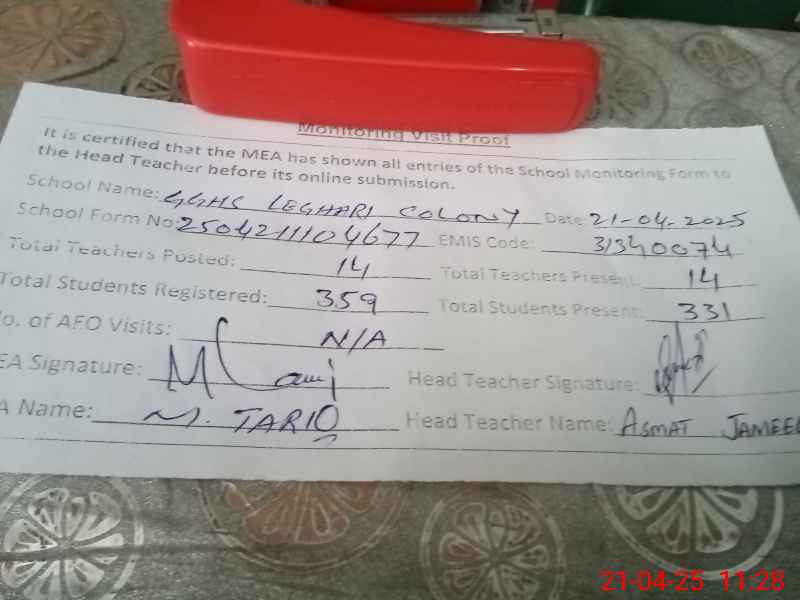 Monitoring Visit Proof
It is certified that the MEA has shown all entries of the School Monitoring Form to
the Head Teacher before its online submission.
School Name: GGHS LEGHARI COLONY Date: 21-04-2025
School Form No: 2504211104677 EMIS Code: 31340074
Total Teachers Posted: 14 Total Teachers Present: 14
Total Students Registered: 359 Total Students Present: 331
No. of AEO Visits: N/A
EA Signature: Head Teacher Signature:
A Name: M. TARIQ Head Teacher Name: ASMAT JAMEEL
21-04-25 11:28